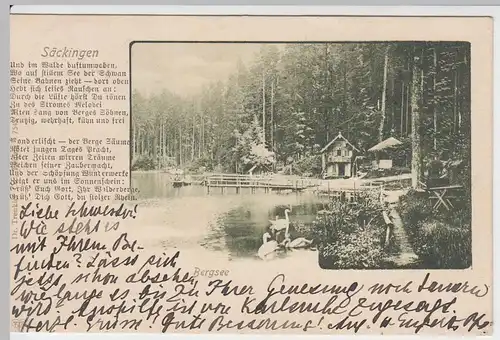 Säckingen
Und im Walde duftumwaben,
Wo auf stillem See der Schwan
Seine Bahnen zieht — dort oben
Hebt sich leises Rauschen an:
Durch die Lüfte hörst Du tönen
In des Stromes Melodei
Alten Sang von Berges Söhnen,
Trutzig, wehrhaft, kühn und frei
Wand erlischt — der Berge Säume
jungen Tages Pracht,
Alter Zeiten wirren Träume
Weichen seiner Zaubermacht,
Und der Schöpfung Wunderwerke
Zeigt er uns im Sonnenschein:
Grüß' Euch Gott, Ihr Waldberge,
Grüß' Dich Gott, du stolzer Rhein,
Bergsee
Liebe Schwester!
Wie steht's
mit Ihrem Be-
finden? Lässt sich
jetzt schon absehen,
wie lange es bis zu Ihrer Genesung noch dauern
wird. Apropos ist von Karlsruhe zugesagt
Herzl. Grüsse! Gute Besserung!